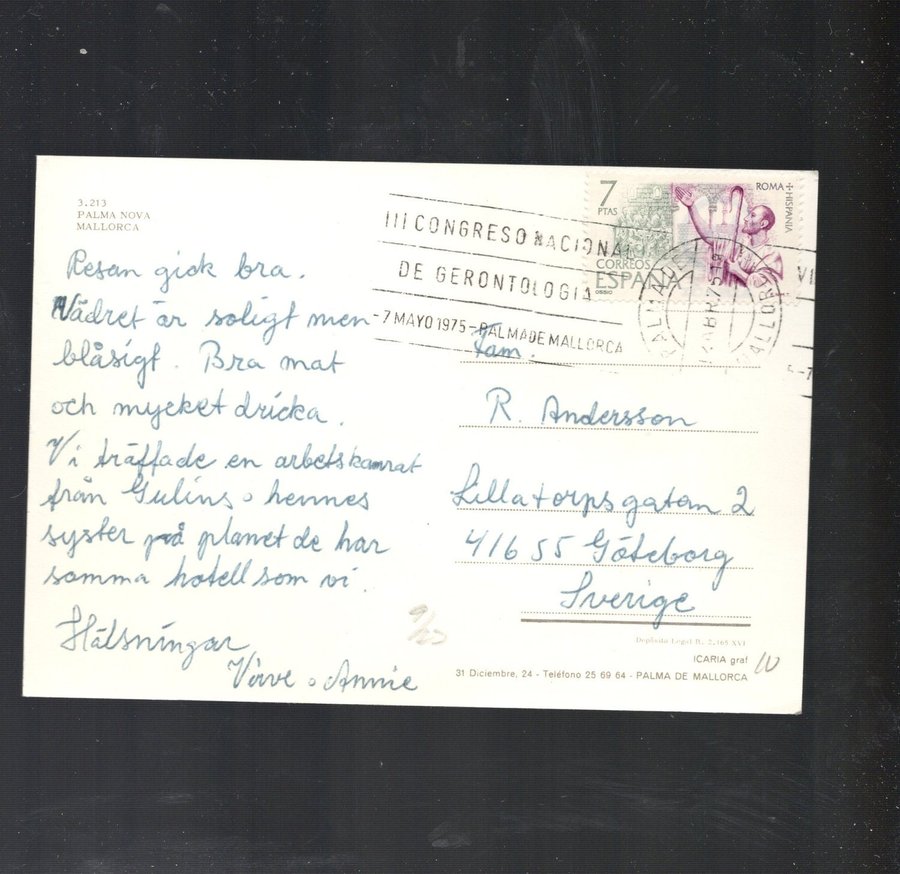 3.213
PALMA NOVA
MALLORCA
Resan gick bra.
Vädret är soligt men
blåsigt. Bra mat
och mycket dricka.
Vi träffade en arbetskamrat
från Gulins o hennes
syster på planet de har
samma hotell som vi.
Hälsningar
Virve o Annie
III CONGRESO NACIONAL
DE GERONTOLOGIA
-7 MAYO 1975-PALMA DE MALLORCA
7
PTAS
ROMA + HISPANIA
CORREOS
ESPAÑA
OSSIO
VI
Fam.
R. Andersson
Lillatorpsgatan 2
416 55 Göteborg
Sverige
Depósito Legal B. 2.165 XVI
ICARIA graf
31 Diciembre, 24 - Teléfono 25 69 64 - PALMA DE MALLORCA
10